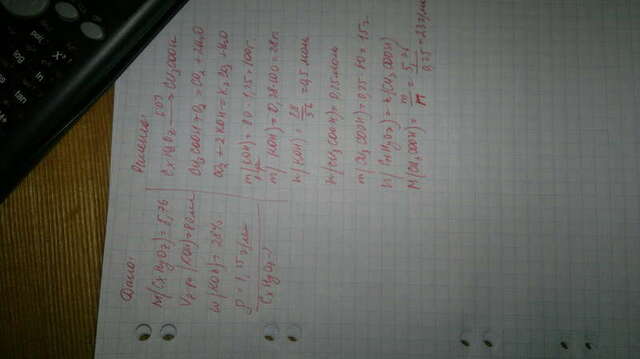 Дано:
m(CxHyOz) = 5,76
Vр-р(KOH) = 80 мл
w(KOH) = 28%
ρ = 1,25 г/мл
CxHyOz - ?
Решение:
CxHyOz → CH3COOH
CH3COOH + O2 = CO2 + H2O
CO2 + 2KOH = K2CO3 + H2O
m(KOH) = 80 · 1,25 = 100г.
m(KOH) = 0,28·100 = 28г.
n(KOH) = 28/56 = 0,5 моль
n(CH3COOH) = 0,25 моль
m(CH3COOH) = 0,25 · 60 = 15г.
n(CxHyOz) = n(CH3COOH)
M(CH3COOH) = m/n = 5,76/0,25 = 23г/моль